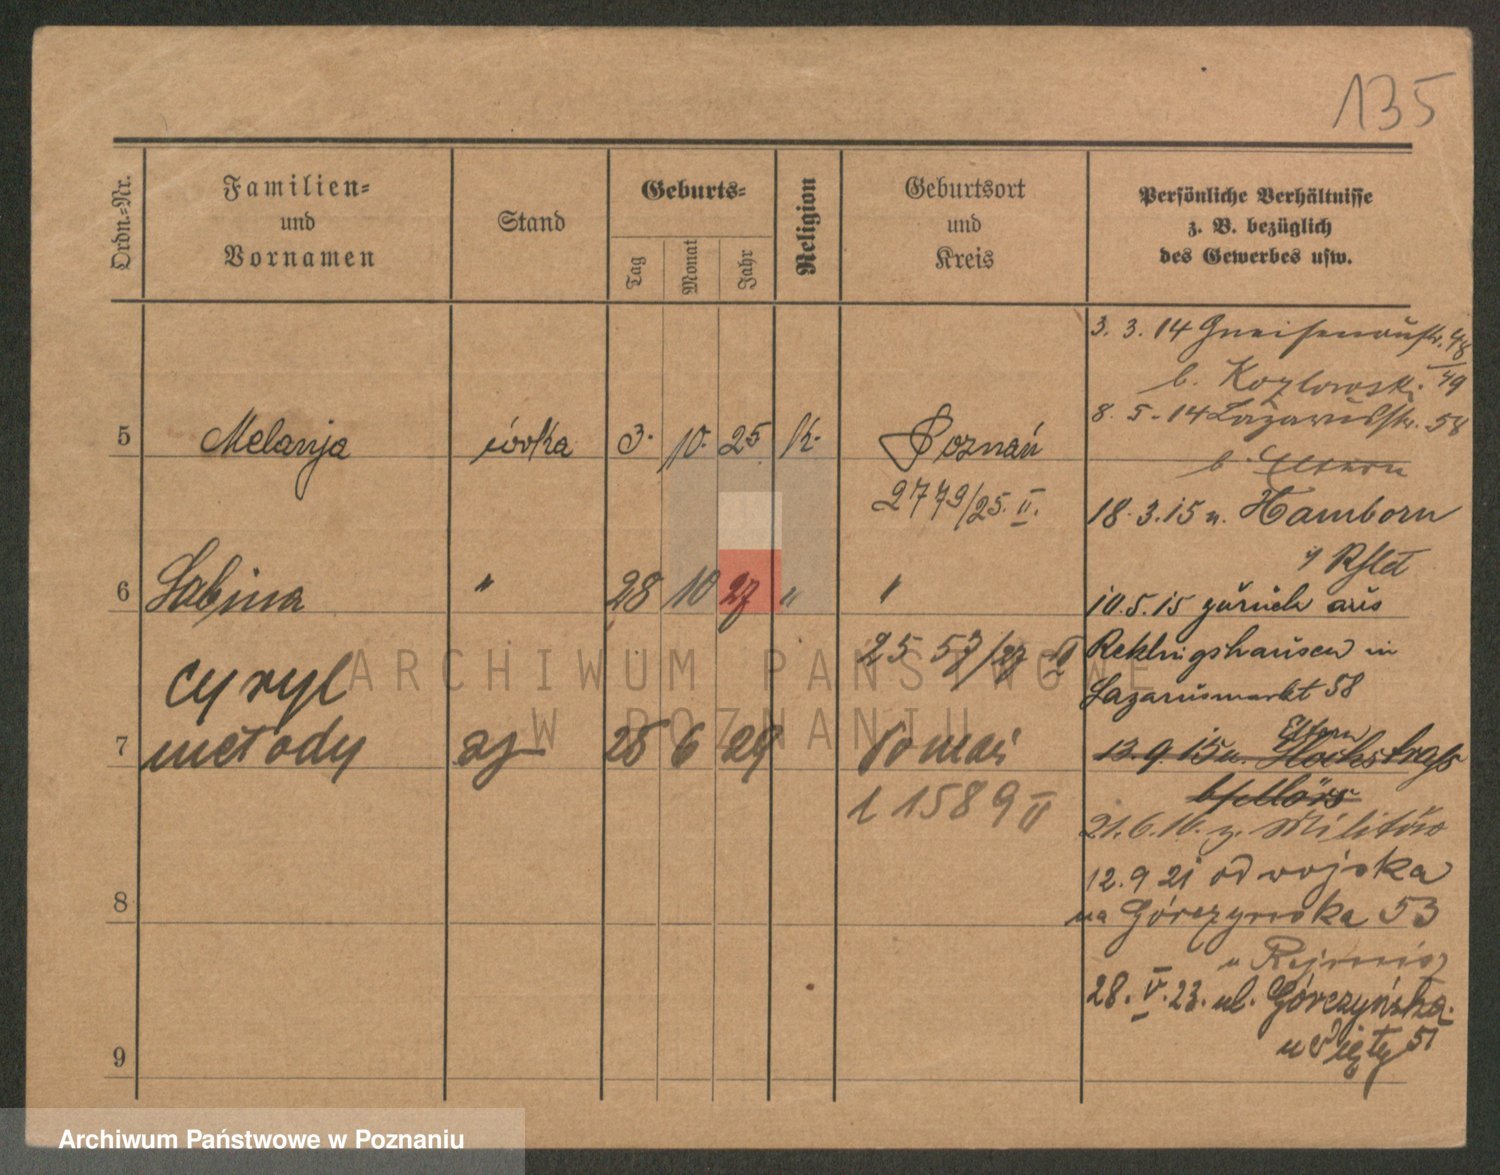 135
Ordn.=Nr.
Familien=
und
Vornamen
Stand
Geburts=
Tag
Monat
Jahr
Religion
Geburtsort
und
Kreis
Persönliche Verhältnisse
z. B. bezüglich
des Gewerbes usw.
3. 3. 14 Gneisenaustr. 48/49
b. Kozlowski
8. 5. 14 Lazarusstr. 58
b. Eltern
5 Melanja córka 3. 10. 25 K. Poznań
2779/25. II.
18. 3. 15 n. Hamborn
10.5.15 zurück aus
6 Sabina " 28 10 27 " "
2557/27 II
Reklingshausen in
Lazarusmarkt 58
Eltern
cyryl
7 metody 25 6 29
1589 II
13. 9. 15 n.
21. 6. 16. z. Militär
12. 9 21 od wojska
8
na Górczyńska 53
28. V. 23. ul. Górczyńska
51
u Pięty
9
ARCHIWUM PAŃSTWOWE
W POZNANIU
Archiwum Państwowe w Poznaniu